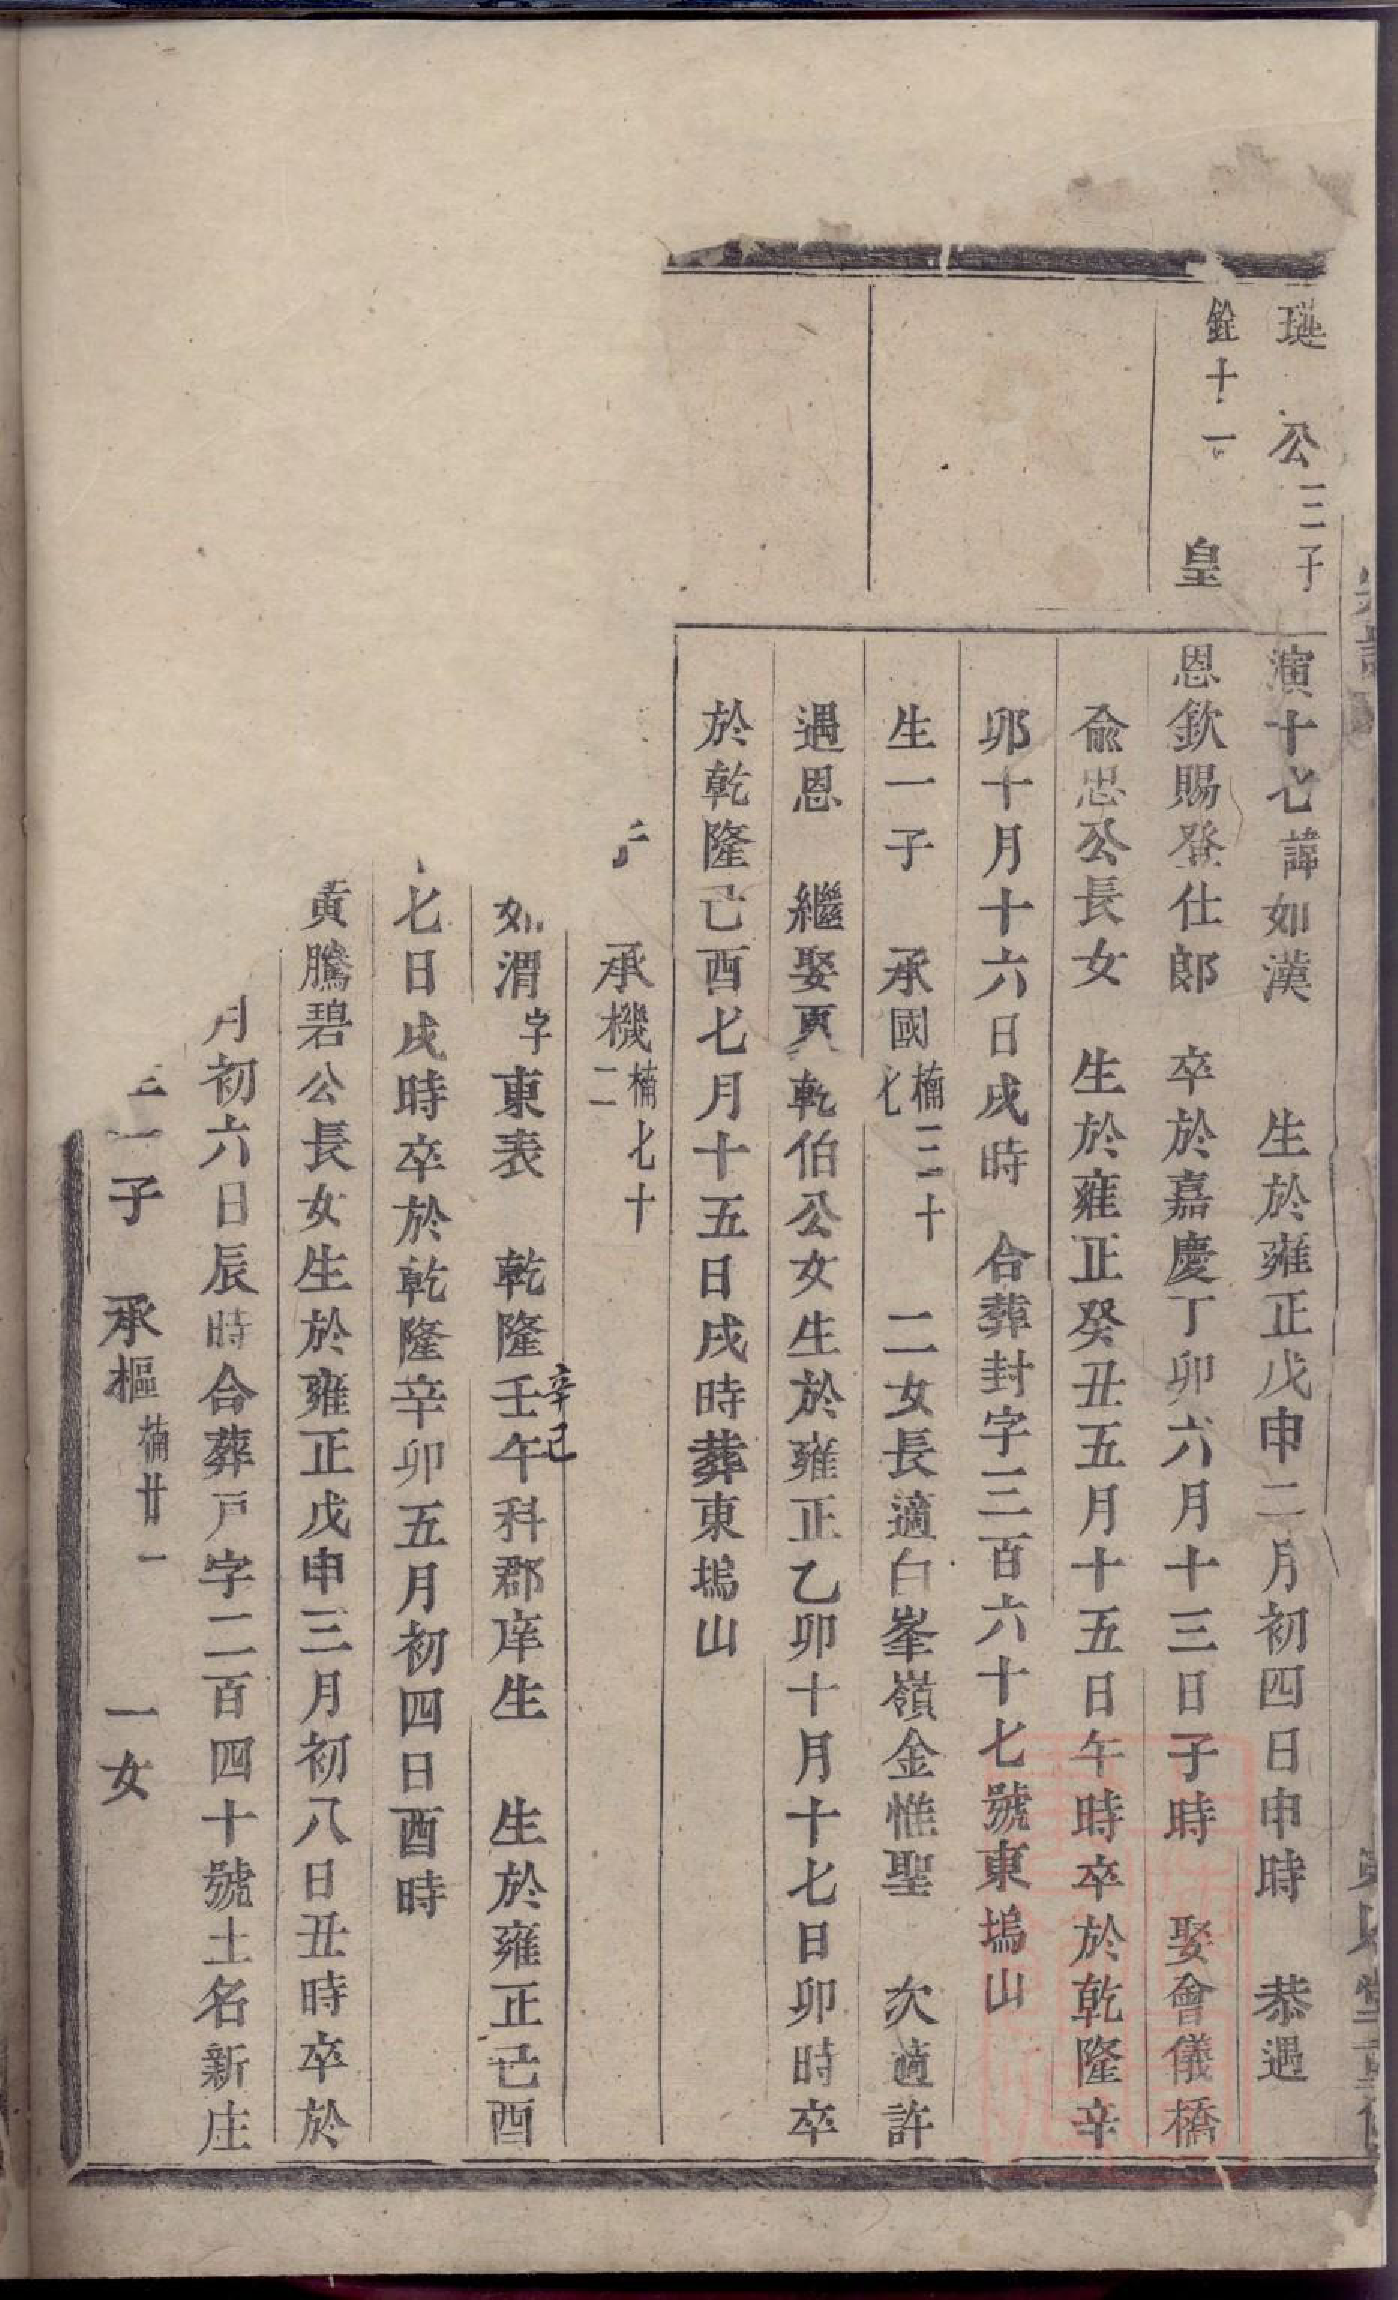 璭公三子
銓十一
演十七諱如漢　生於雍正戊申二月初四日申時　恭遇
皇
恩欽賜登仕郎　卒於嘉慶丁卯六月十三日子時　娶會儀橋
俞思公長女　生於雍正癸丑五月十五日午時卒於乾隆辛
卯十月十六日戌時　合葬封字三百六十七號東塢山
生一子　承國楠三十七　二女長適白峯嶺金惟聖　次適許
遇恩　繼娶夏乾伯公女生於雍正乙卯十月十七日卯時卒
於乾隆己酉七月十五日戌時葬東塢山
承機楠七十二
如渭字東表　乾隆壬午科郡庠生　生於雍正己酉
辛己
七日戌時卒於乾隆辛卯五月初四日酉時
黃騰碧公長女生於雍正戊申三月初八日丑時卒於
月初六日辰時合葬戸字二百四十號土名新庄
一子　承樞楠廿一　一女